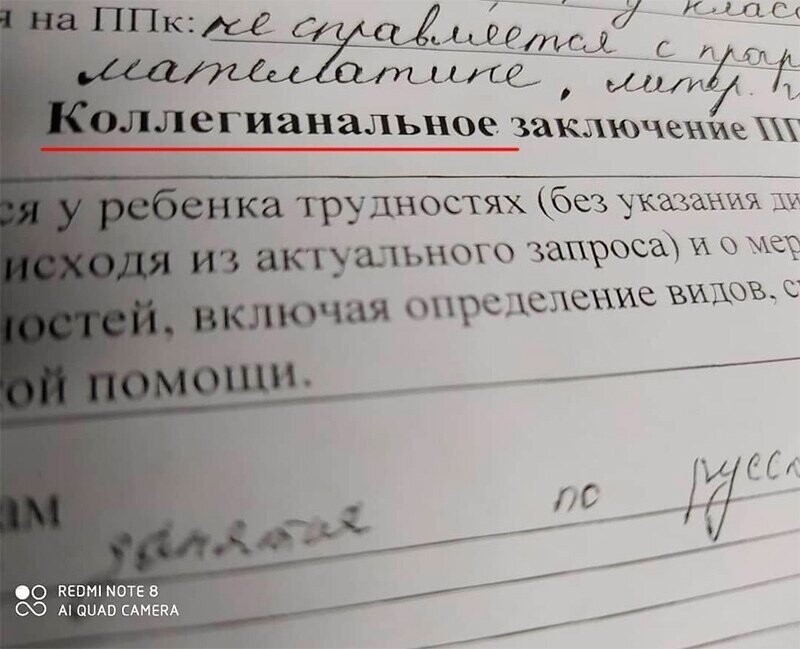 я на ППк: не справляется с прогр
математике, литер.
Коллегианальное заключение ПП
ся у ребенка трудностях (без указания ди
исходя из актуального запроса) и о мер
ностей, включая определение видов, с
ой помощи.
ам занятия по русс
REDMI NOTE 8
AI QUAD CAMERA